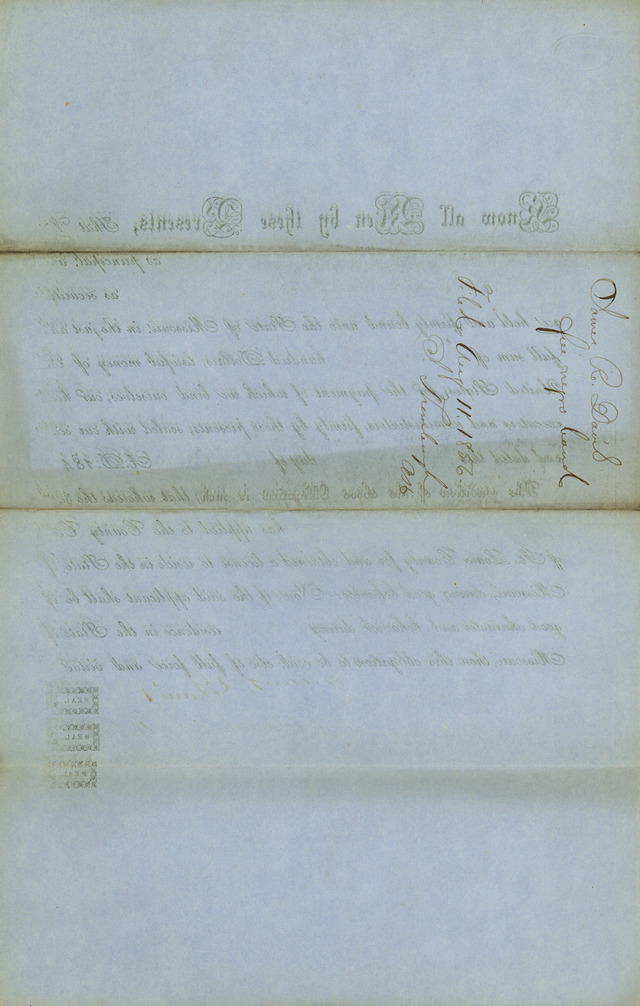 James R. Davis
free negro bond
Filed Aug 11. 1856
Clk
Know all Men by these Presents, That
as principal,
as securit
held and firmly bound unto the State of Missouri, in the just
full sum of hundred Dollars, lawful money of
United States, the payment of which we bond ourselves, our
executors and administrators, firmly by these presents, sealed with our
and dated this day of A. D. 18
The condition of the above Obligation is such, that whereas the
has applied to the County
of St. Louis County for and obtained a license to reside in the State
Missouri, during good behavior: Now if the said applicant shall be
good character and behavior during residence in the State
Missouri, then this obligation to be void, else of full force and virtue
SEAL
SEAL
SEAL